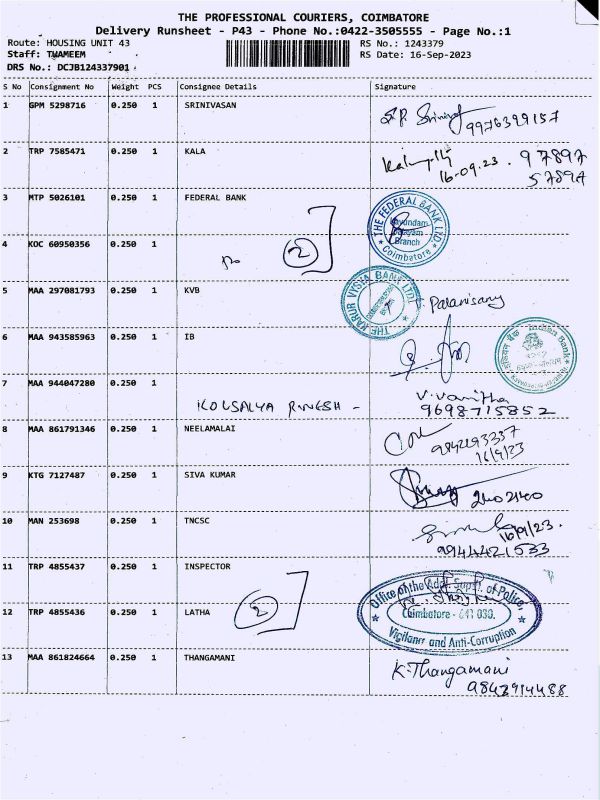 THE PROFESSIONAL COURIERS, COIMBATORE
Delivery Runsheet - P43 - Phone No.:0422-3505555 - Page No.:1
Route: HOUSING UNIT 43 RS No.: 1243379
Staff: THAMEEM RS Date: 16-Sep-2023
DRS No.: DCJB124337901
S No Consignment No Weight PCS Consignee Details Signature
1 GPM 5298716 0.250 1 SRINIVASAN
9976399157
2 TRP 7585471 0.250 1 KALA
16.09.23. 97897
57897
3 MTP 5026101 0.250 1 FEDERAL BANK THE FEDERAL BANK LTD.
Branch
Coimbatore
4 KOC 60950356 0.250 1 2
5 MAA 297081793 0.250 1 KVB THE KARUR VYSYA BANK LTD.
V. Palanisamy
6 MAA 943585963 0.250 1 IB Indian Bank
7 MAA 944047280 0.250 1
KOUSALYA RINGESH - V. Vanitha
9698715852
8 MAA 861791346 0.250 1 NEELAMALAI
9842193337
16/9/23
9 KTG 7127487 0.250 1 SIVA KUMAR
2402140
10 MAN 253698 0.250 1 TNCSC
16/9/23.
9944421533
11 TRP 4855437 0.250 1 INSPECTOR
Office of the Addl. Supdt. of Police,
12 TRP 4855436 0.250 1 LATHA 2 Coimbatore - 641 030.
Vigilance and Anti-Corruption
13 MAA 861824664 0.250 1 THANGAMANI K. Thangamani
9843914488